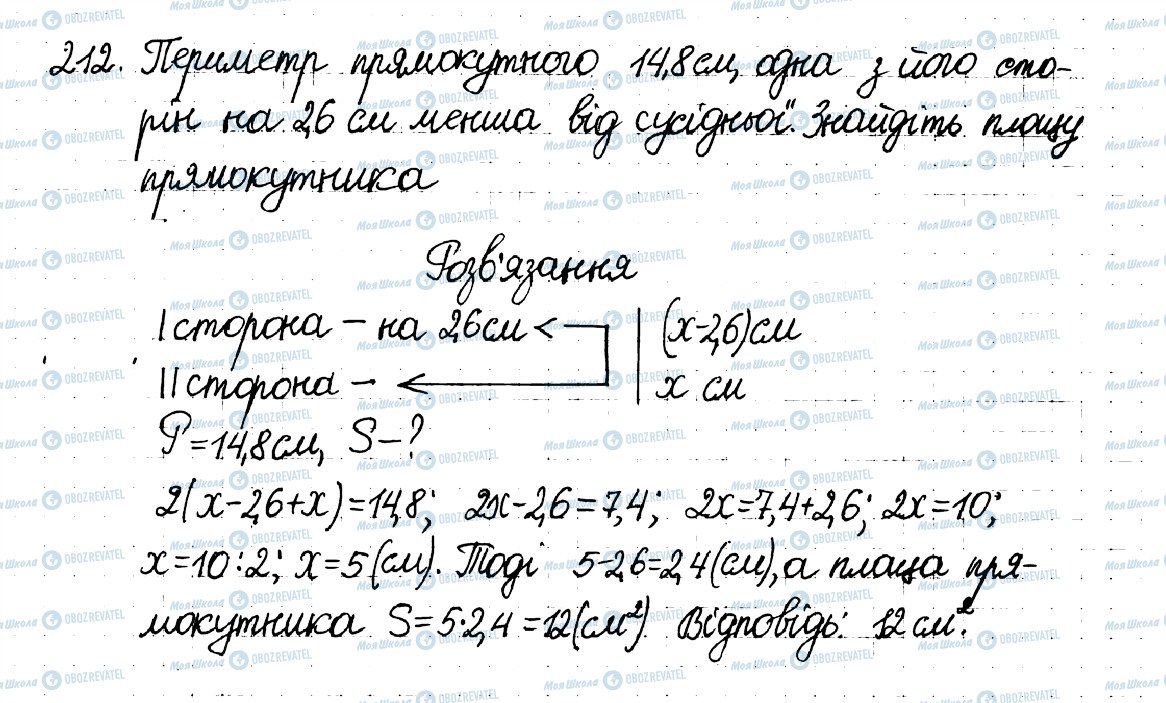 212. Периметр прямокутного 14,8 см, одна з його сто-
рін на 2,6 см менша від сусідньої". Знайдіть площу
прямокутника
Розв'язання
I сторона – на 2,6 см < (x-2,6) см
II сторона – x см
P = 14,8 см, S – ?
2(x-2,6+x) = 14,8; 2x-2,6 = 7,4; 2x = 7,4+2,6; 2x = 10;
x = 10 : 2; x = 5 (см). Тоді 5-2,6 = 2,4 (см), а площа пря-
мокутника S = 5·2,4 = 12 (см²). Відповідь: 12 см².
Моя Школа OBOZREVATEL